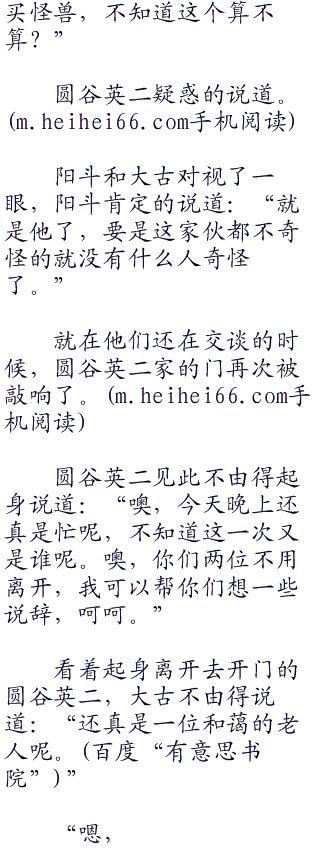 买怪兽，不知道这个算不
算？”
圆谷英二疑惑的说道。
(m.heihei66.com手机阅读)
阳斗和大古对视了一
眼，阳斗肯定的说道：“就
是他了，要是这家伙都不奇
怪的就没有什么人奇怪
了。”
就在他们还在交谈的时
候，圆谷英二家的门再次被
敲响了。(m.heihei66.com手
机阅读)
圆谷英二见此不由得起
身说道：“噢，今天晚上还
真是忙呢，不知道这一次又
是谁呢。噢，你们两位不用
离开，我可以帮你们想一些
说辞，呵呵。”
看着起身离开去开门的
圆谷英二，大古不由得说
道：“还真是一位和蔼的老
人呢。(百度“有意思书
院”)”
“嗯，